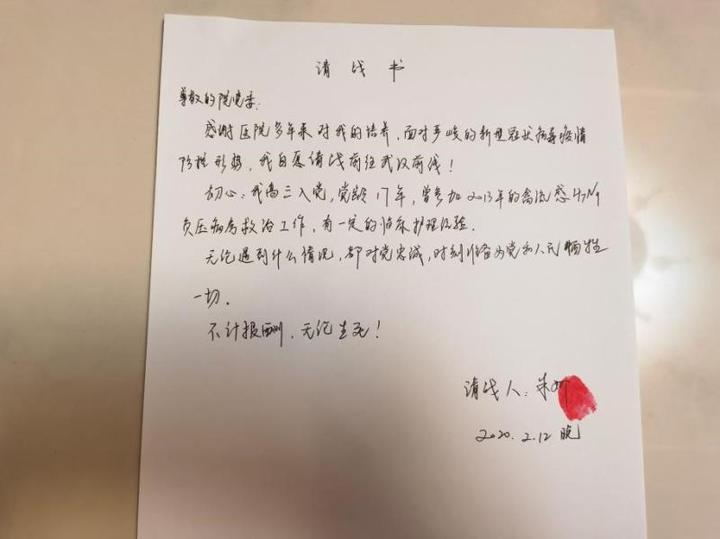 请战书
尊敬的院党委:
感谢医院多年来对我的培养,面对严峻的新型冠状病毒疫情
防控形势,我自愿请战前往武汉前线!
初心:我高三入党,党龄17年,曾参加2013年的禽流感H7N9
负压病房救治工作,有一定的临床护理经验。
无论遇到什么情况,都对党忠诚,时刻准备为党和人民牺牲
一切.
不计报酬、无论生死!
请战人:朱
2020.2.12 晚